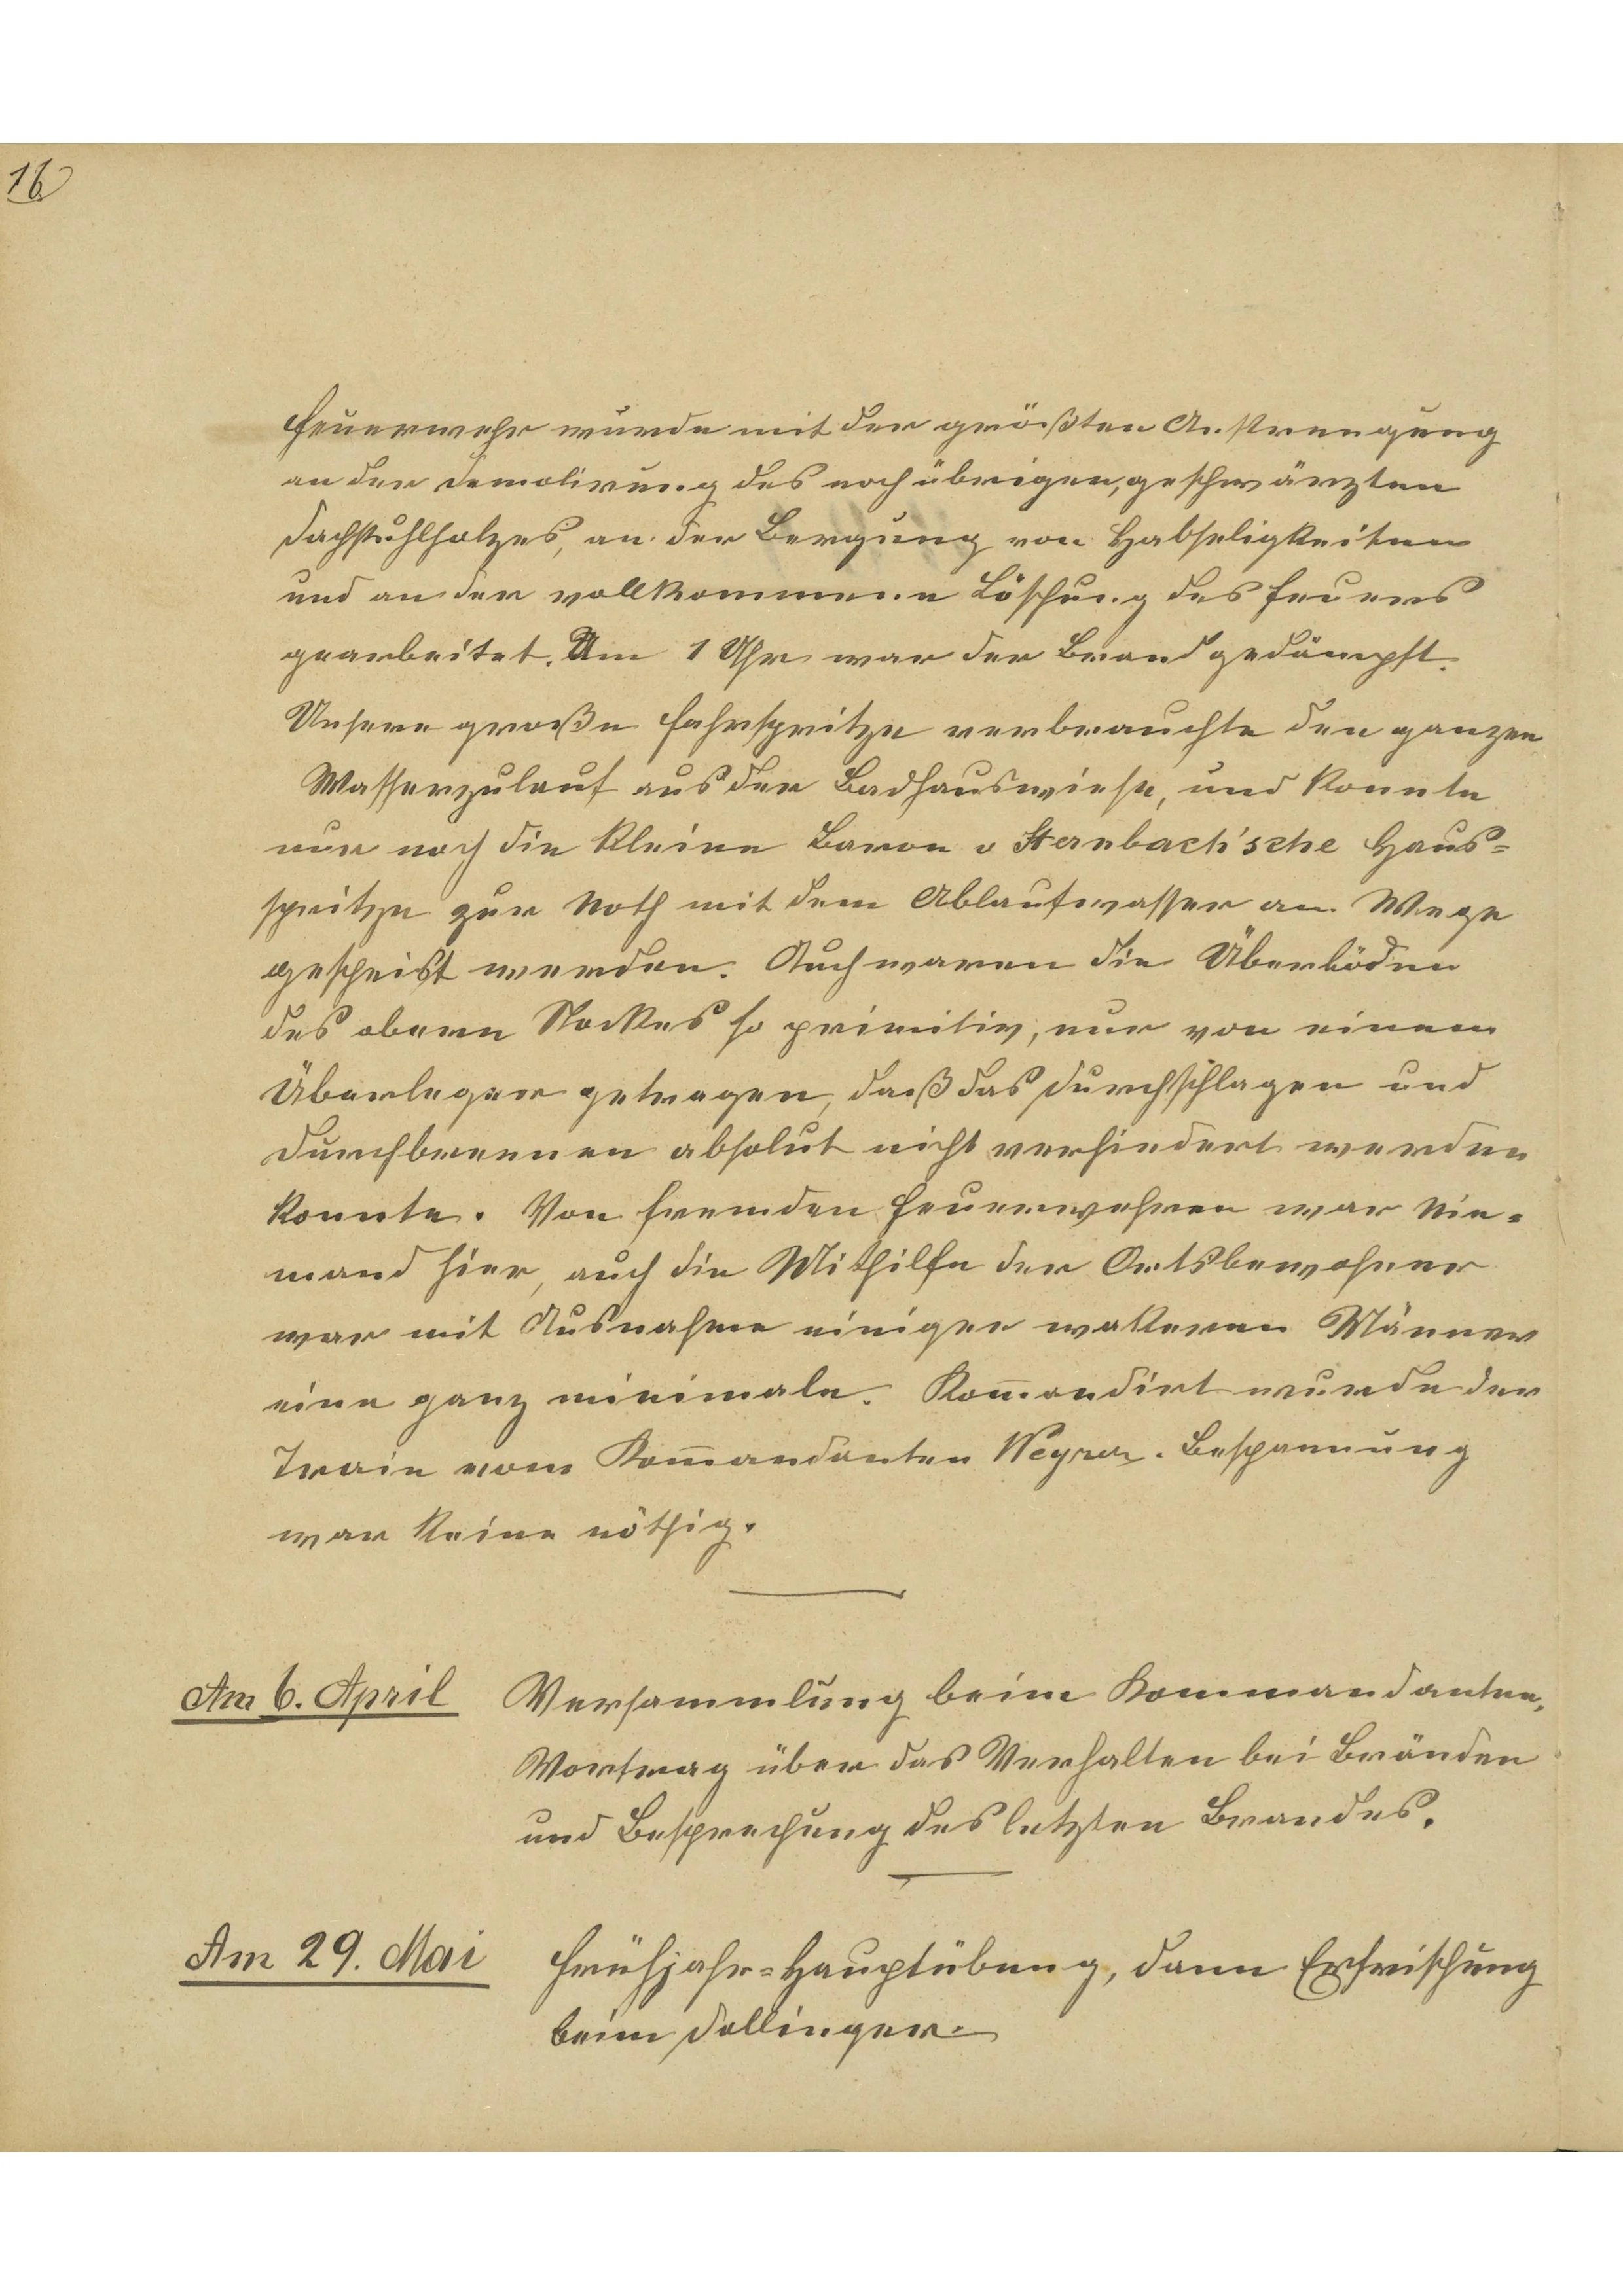 16
Feuerwehr wurde mit der größten Anstrengung
an der Demolirung des noch übrigen, geschwärzten
Dachstuhlholzes, an der Bergung von Habseligkeiten
und an der vollkommenen Löschung des Feuers
gearbeitet. Um 1 Uhr war der Brand gedämpft.
Unsere große Fahrspritze verbrauchte den ganzen
Wasserzulauf aus der Badhauswiese, und konnte
nur noch die kleine Baron v Sternbach'sche Haus=
spritze zur Noth mit dem Ablaufwasser am Wege
gespeist werden. Auch waren die Überböden
des obern Stockes so primitiv, nur von einem
Überleger getragen, daß das Durchschlagen und
Durchbrennen absolut nicht verhindert werden
konnte. Von fremden Feuerwehren war Nie=
mand hier, auch die Mithilfe der Ortsbewohner
war mit Ausnahme einiger wakeren Männer
eine ganz minimale. Kom̅andirt wurde der
Train vom Kom̅andanten Weyrer. Bespannung
war keine nöthig.
Am 6. April Versammlung beim Kommandanten,
Vortrag über das Verhalten bei Bränden
und Besprechung des letzten Brandes.
Am 29. Mai Frühjahr=Hauptübung, dann Erfrischung
beim Dollinger.